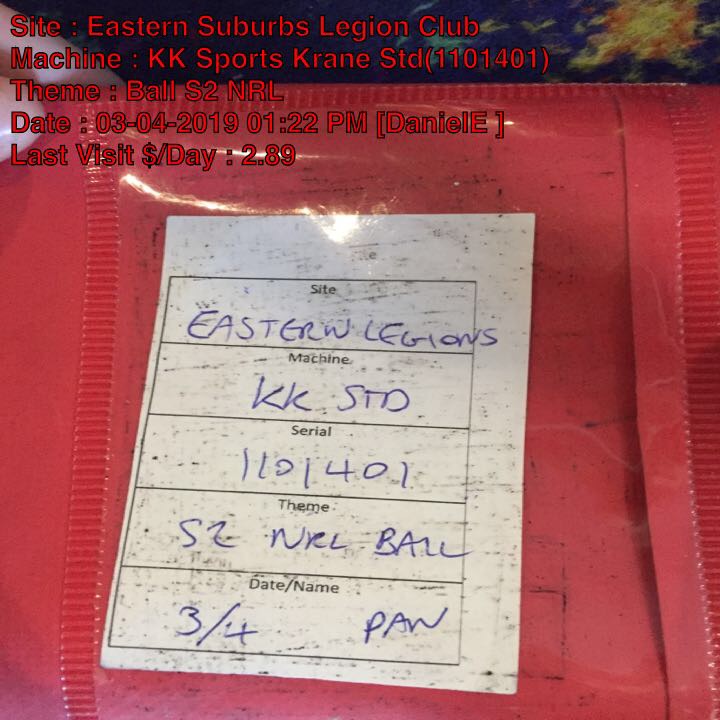 Site : Eastern Suburbs Legion Club
Machine : KK Sports Krane Std(1101401)
Theme : Ball S2 NRL
Date : 03-04-2019 01:22 PM [DanielE ]
Last Visit $/Day : 2.89
Site
EASTERN LEGIONS
Machine
KK STD
Serial
1101401
Theme
S2 NRL BALL
Date/Name
3/4 PAN